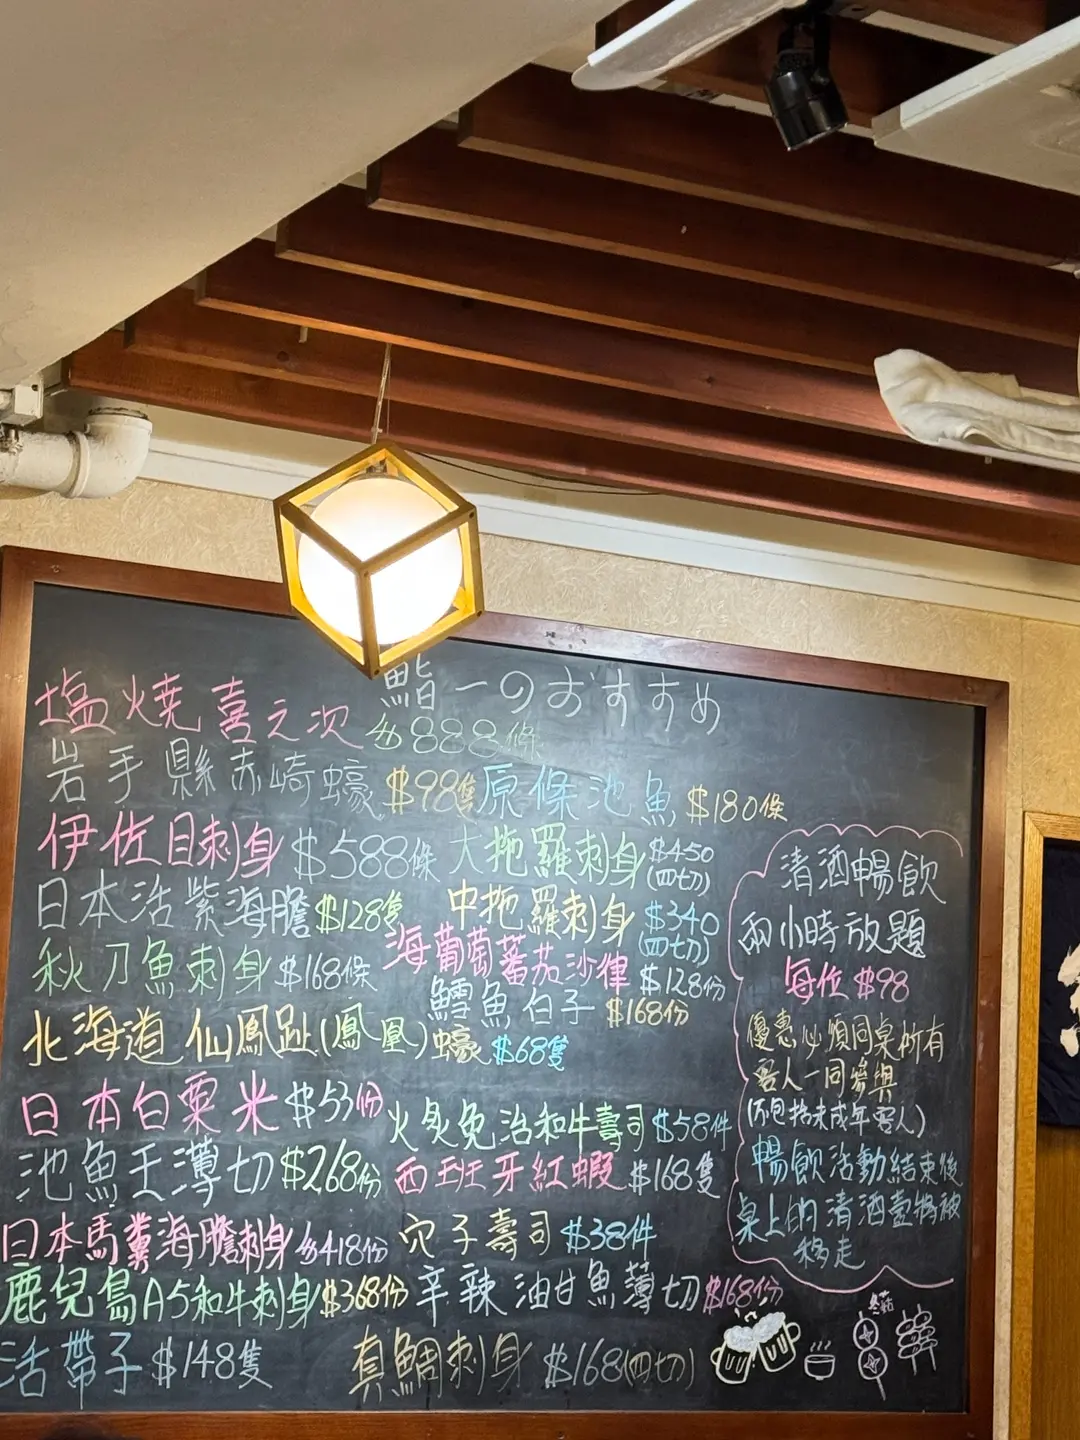 鮨一のおすすめ
塩燒喜之次 $888條
岩手縣赤崎蠔 $98隻
原條池魚 $180條
伊佐目刺身 $588條
大拖羅刺身 $450 (四切)
日本活紫海膽 $128隻
中拖羅刺身 $340 (四切)
秋刀魚刺身 $168條
海葡萄蕃茄沙律 $128份
鱈魚白子 $168份
北海道仙鳳趾(鳳凰)蠔 $68隻
日本白粟米 $53份
火炙免治和牛壽司 $58件
池魚王薄切 $268份
西班牙紅蝦 $168隻
日本馬糞海膽刺身 $418份
穴子壽司 $38件
鹿兒島A5和牛刺身 $368份
辛辣油甘魚薄切 $168份
活帶子 $148隻
真鯛刺身 $168(四切)
清酒暢飲
兩小時放題
每位 $98
優惠必須同桌所有
客人一同參與
(不包括未成年客人)
暢飲活動結束後
桌上的清酒壺將被
移走